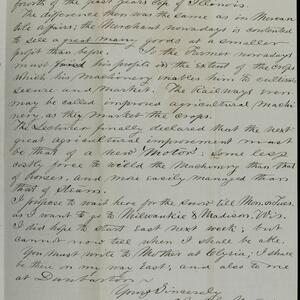 fourth of the past years life of Illinois.
The difference then was the same as in Mercan
tile Affairs; the Merchant nowadays is contented
to sell a great many goods at a smaller
profit than before. So the Farmer nowadays
must find his profits in the extent of the crops
which his machinery enables him to cultivate
secure and market. The Railways even
may be called improved agricultural machi
nery, as they market the crops.
The Lecturer finally declared that the next
great agricultural improvement must
be that of a new "Motor"; some less
costly force to wield the Machinery than that
of horses, and more easily managed than
that of Steam.
I propose to wait here for the snow till Monday
as I want to go to Milwaukie & Madison, Wis.
I did hope to start East next week; but
cannot now tell when I shall be able.
You must write to Mother at Elyria; I shall
be there on my way East; and also to me
at Dunbarton
Yours Sincerely